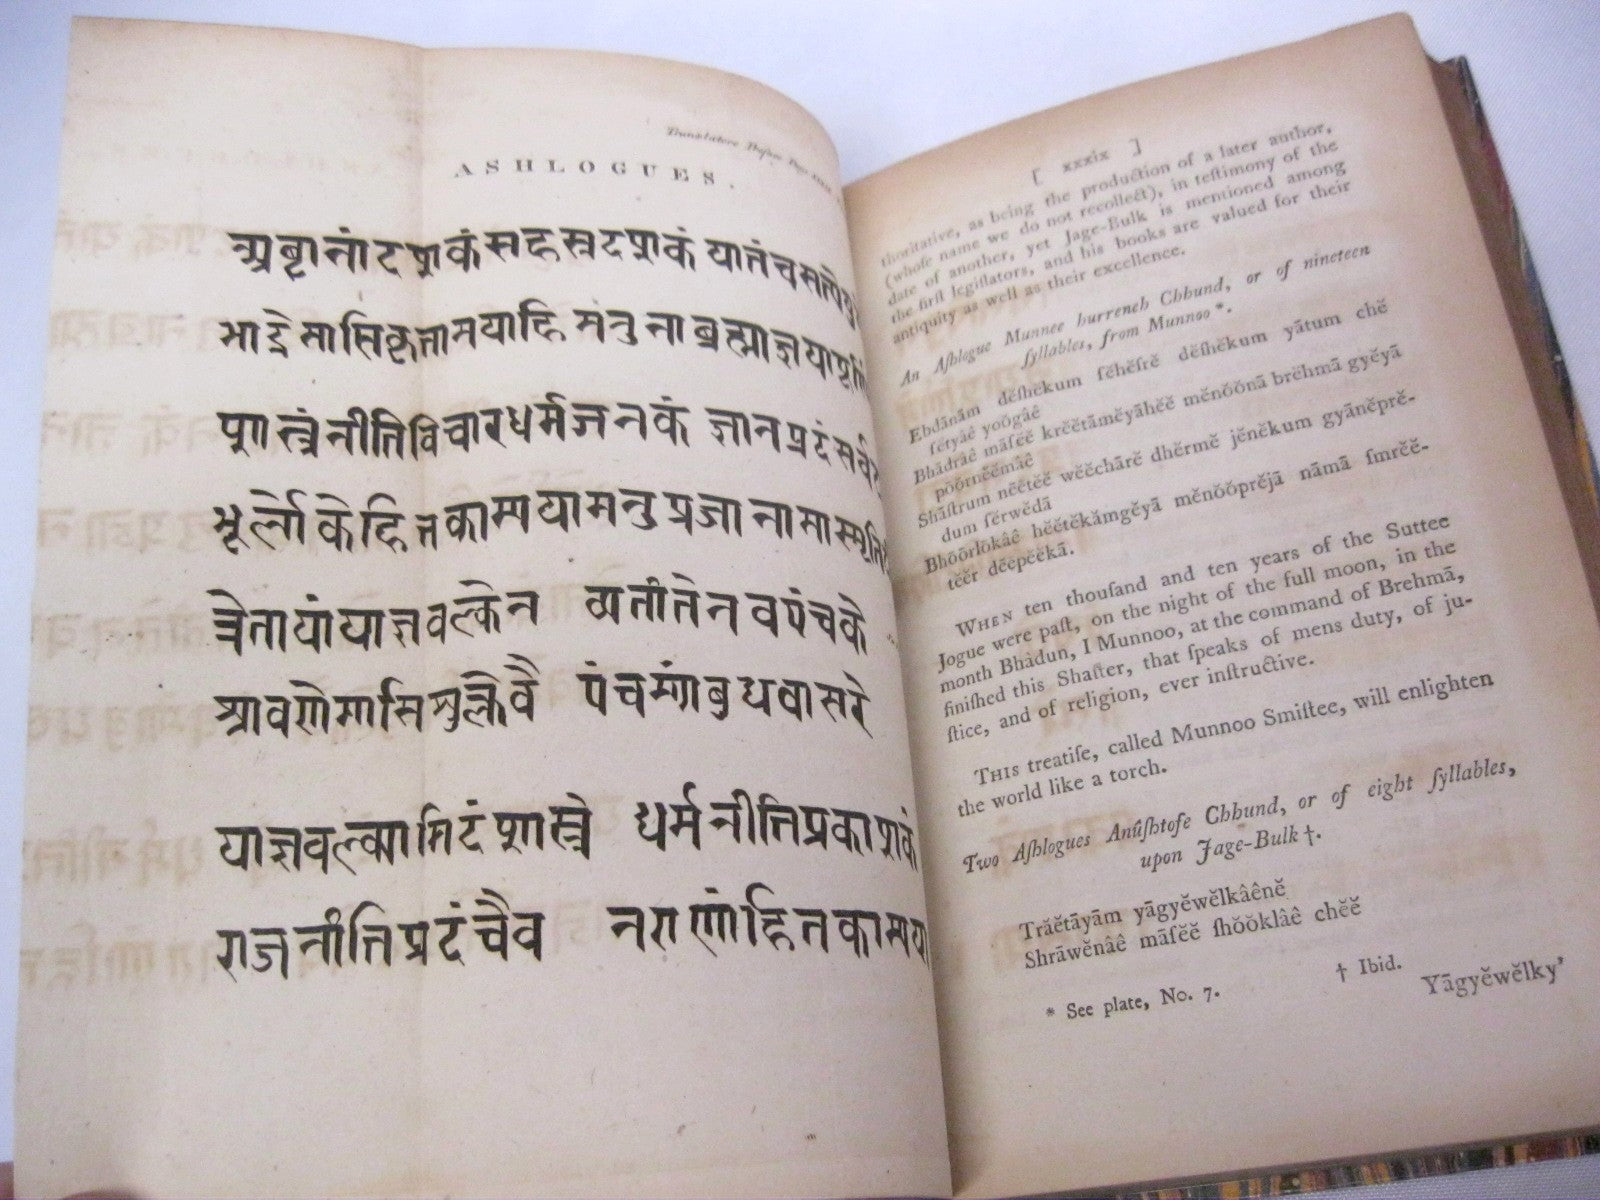 Translators Preface Page
ASHLOGUES.
अब्दानांदशकंसहस्रदशकं यातंचसत्येयु
भाद्रेमासिकृतामयाहि मनुनाब्रह्माज्ञयापूर्णि
शास्त्रंनीतिविचारधर्मजनकं ज्ञानप्रदंसर्व
भूर्लोकेहितकाम्ययामनु प्रजानामास्मृति
त्रेतायांयाज्ञवल्केन व्यतीतेनवपंचके
श्रावणेमासिशुक्लेवै पंचम्यांबुधवासरे
याज्ञवल्क्यामिदंशास्त्रे धर्मनीतिप्रकाशकं
राजनीतिप्रदंचैव नराणांहितकाम्यया
[ xxxix ]
thoritative, as being the production of a later author,
(whoſe name we do not recollect), in teſtimony of the
date of another, yet Jage-Bulk is mentioned among
the firſt legiſlators, and his books are valued for their
antiquity as well as their excellence.
An Aſhlogue Munnee hurreneh Chhund, or of nineteen
ſyllables, from Munnoo*.
Ebdānām dĕſhĕkum ſĕhĕſrĕ dĕſhĕkum yātum chĕ
ſĕtyâê yoōgâê
Bhādrâê māſĕĕ krĕĕtāmĕyāhĕĕ mĕnŏŏnā brĕhmā gyĕyā
pōōrnĕĕmâê
Shāſtrum nēĕtĕĕ wĕĕchārĕ dhĕrmĕ jĕnĕkum gyānĕprĕ-
dum ſĕrwĕdā
Bhōōrlōkâê hĕĕtĕkāmgĕyā mĕnŏŏprĕjā nāmā ſmrĕĕ-
tĕĕr dĕepĕĕkā.
WHEN ten thouſand and ten years of the Suttee
Jogue were paſt, on the night of the full moon, in the
month Bhādun, I Munnoo, at the command of Brehmā,
finiſhed this Shaſter, that ſpeaks of mens duty, of ju-
ſtice, and of religion, ever inſtructive.
THIS treatiſe, called Munnoo Smiſtee, will enlighten
the world like a torch.
Two Aſhlogues Anûſhtofe Chhund, or of eight ſyllables,
upon Jage-Bulk †.
Trāĕtāyām yāgyĕwĕlkâênĕ
Shrāwĕnâê māſĕĕ ſhŏŏklâê chĕĕ
* See plate, No. 7. † Ibid.
Yāgyĕwĕlky'